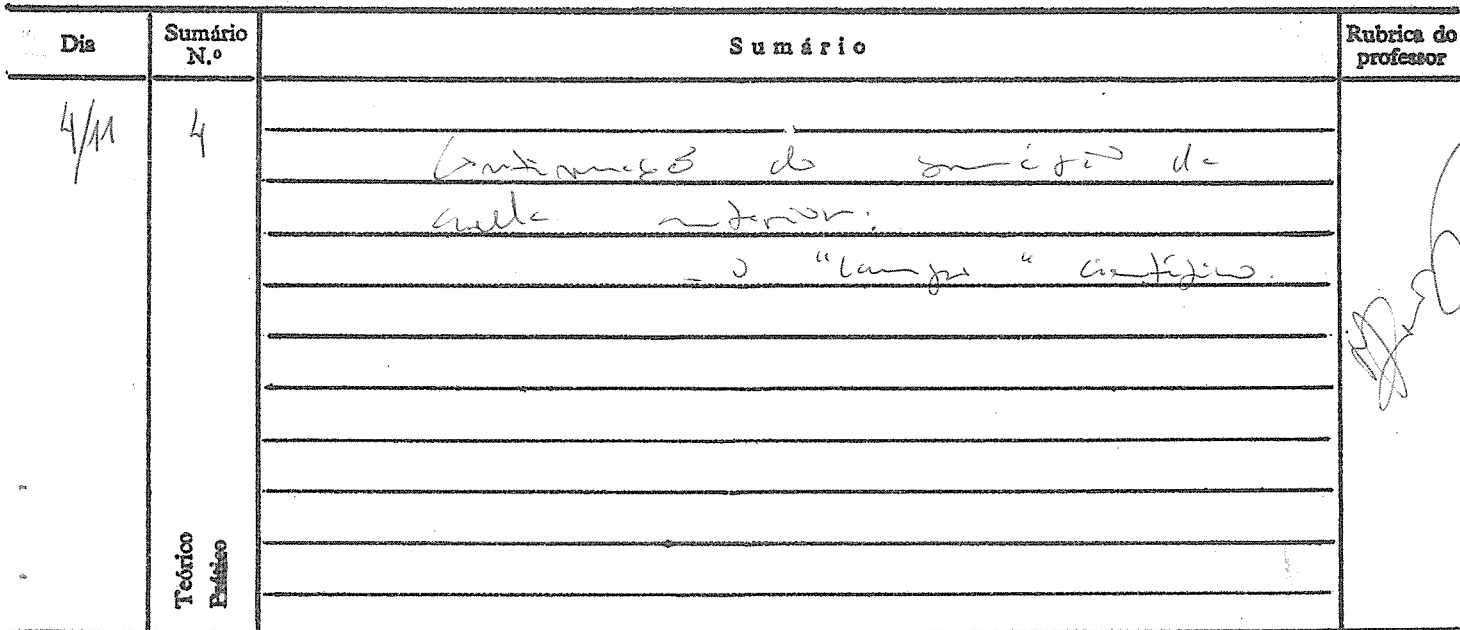 Dia
Sumário
N.º
Sumário
Rubrica do
professor
4/11
4
Continuação do sumário da
aula anterior:
– O "campo" científico.
Teórico
Prático